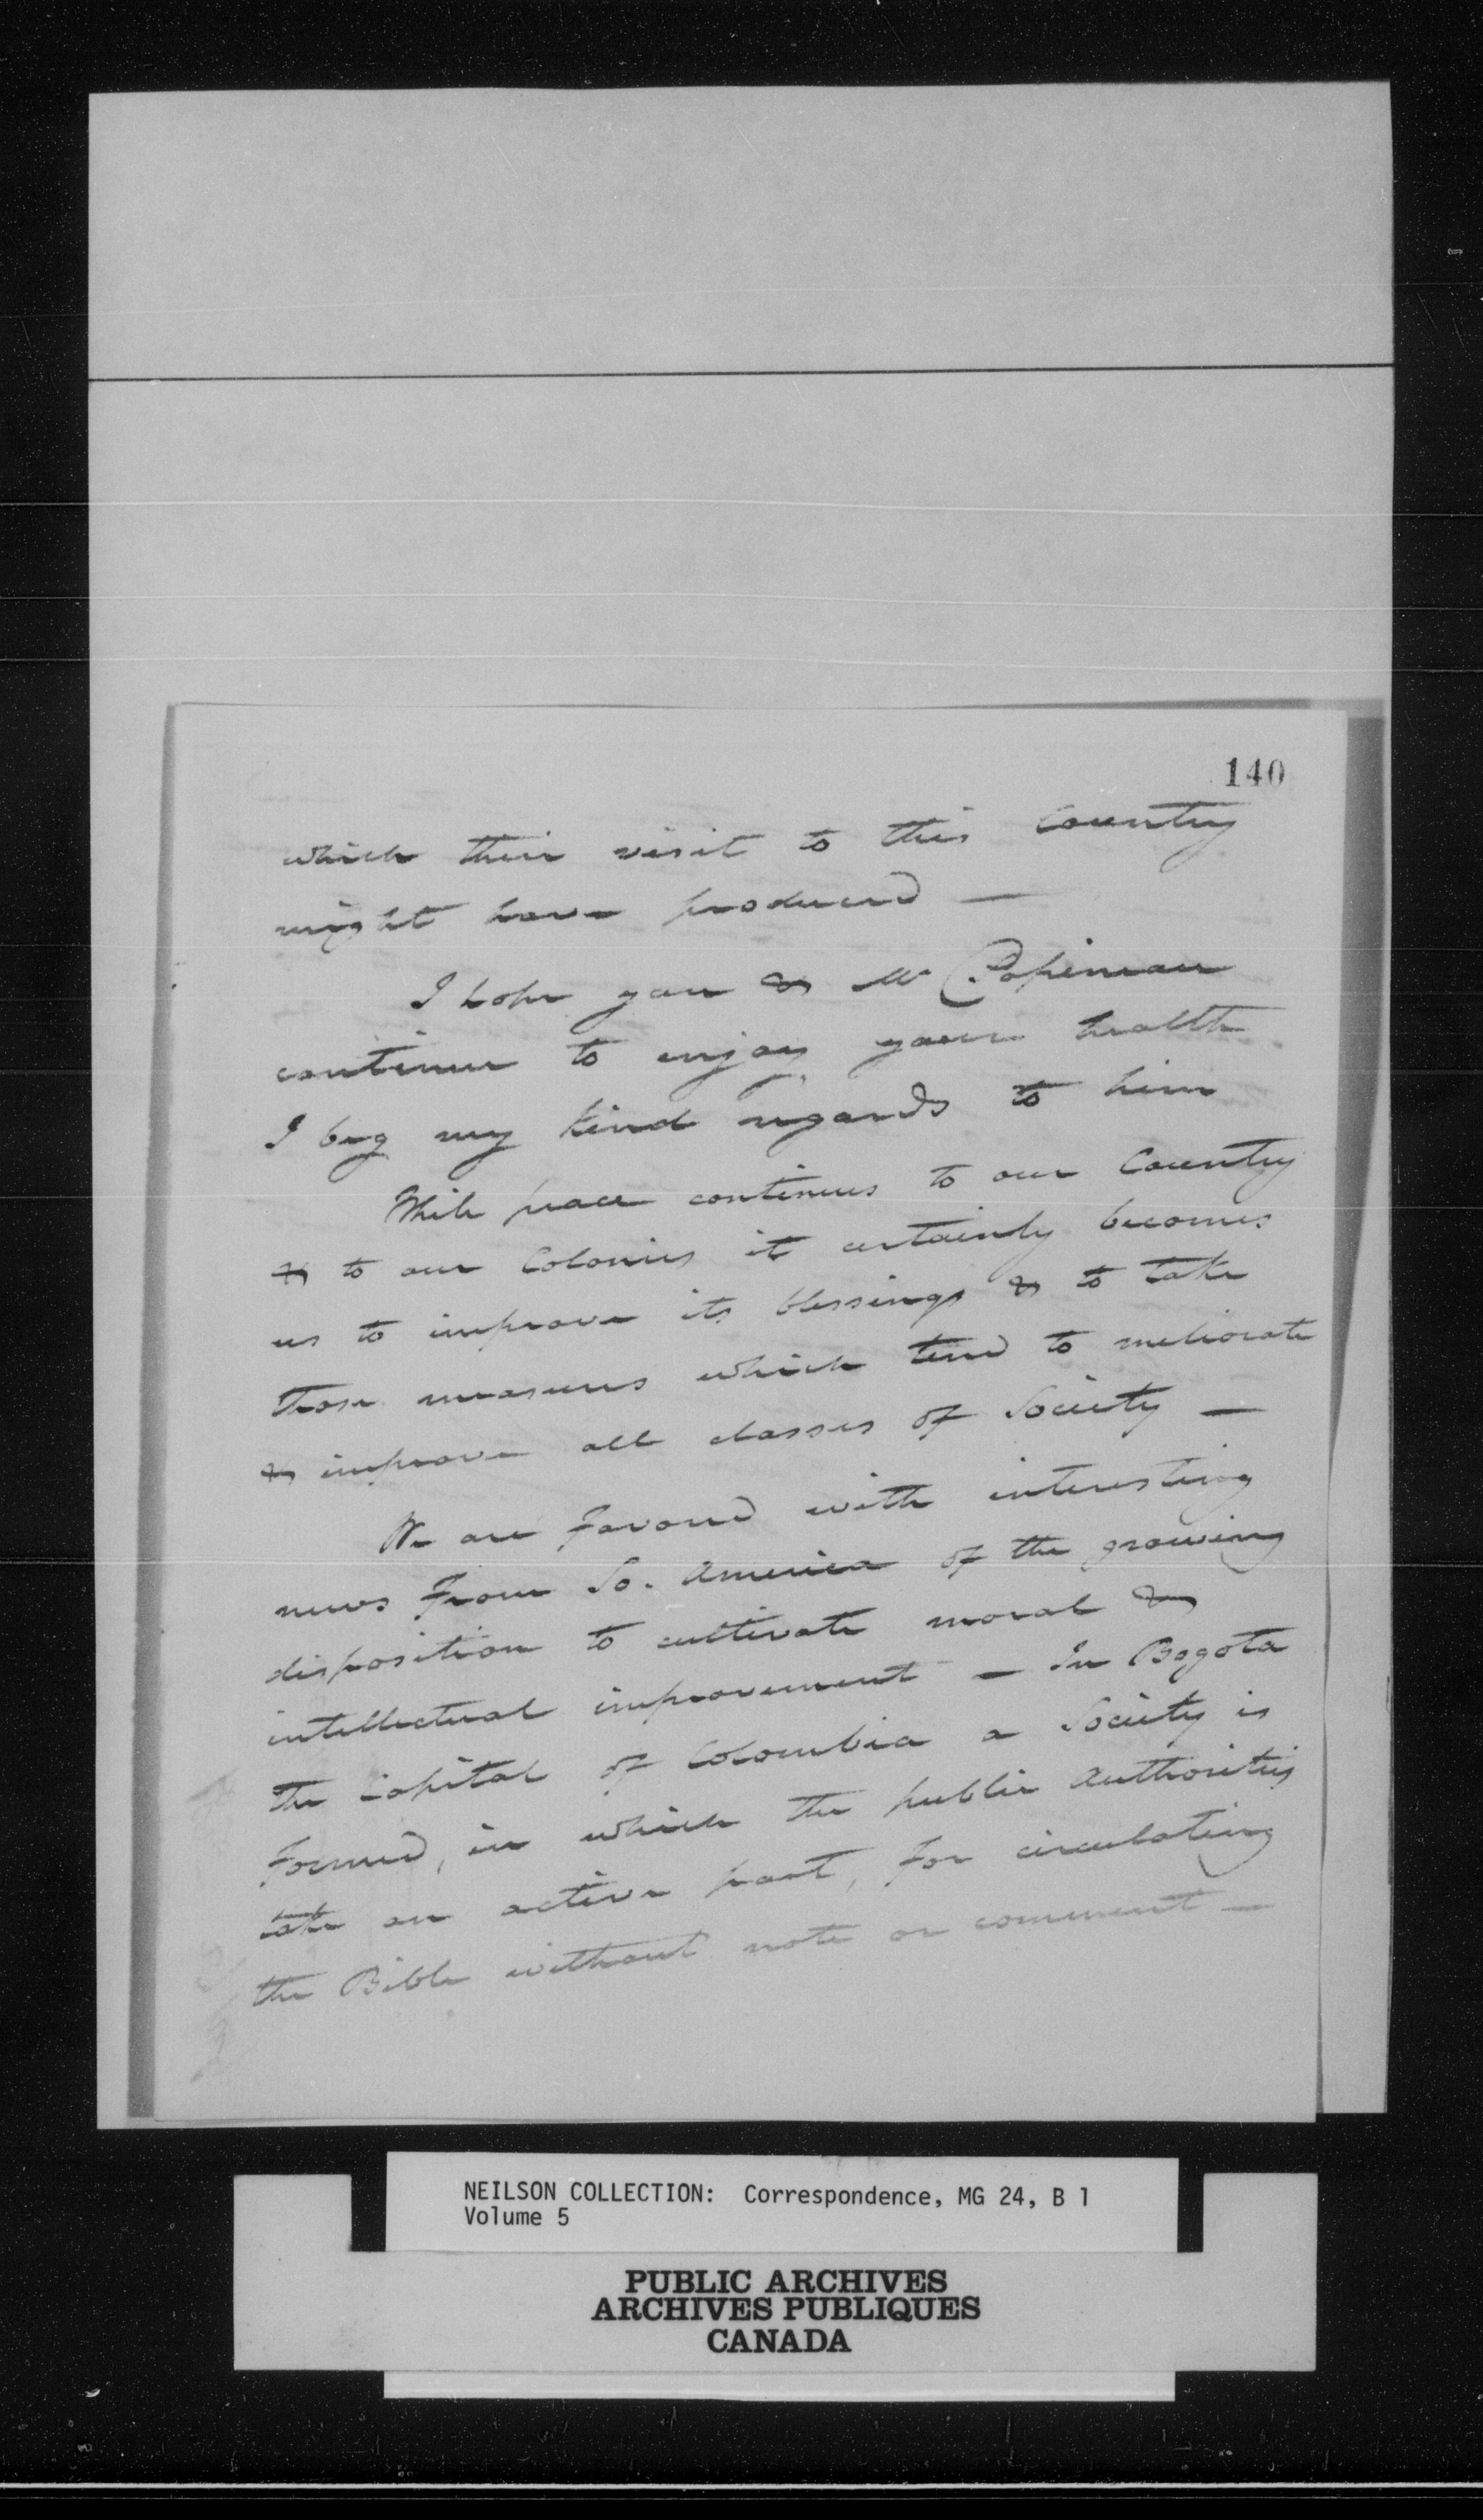 140
which their visit to this Country
might have produced —
I hope you & Mr Papineau
continue to enjoy your health
I beg my kind regards to him
While peace continues to our Country
& to our Colonies it certainly becomes
us to improve its blessings & to take
those measures which tend to meliorate
& improve all classes of Society —
We are favored with interesting
news from So. America of the growing
disposition to cultivate moral &
intellectual improvement — In Bogota
the Capital of Colombia a Society is
formed, in which the public Authorities
take an active part, for circulating
the Bible without note or comment —
NEILSON COLLECTION: Correspondence, MG 24, B 1
Volume 5
PUBLIC ARCHIVES
ARCHIVES PUBLIQUES
CANADA